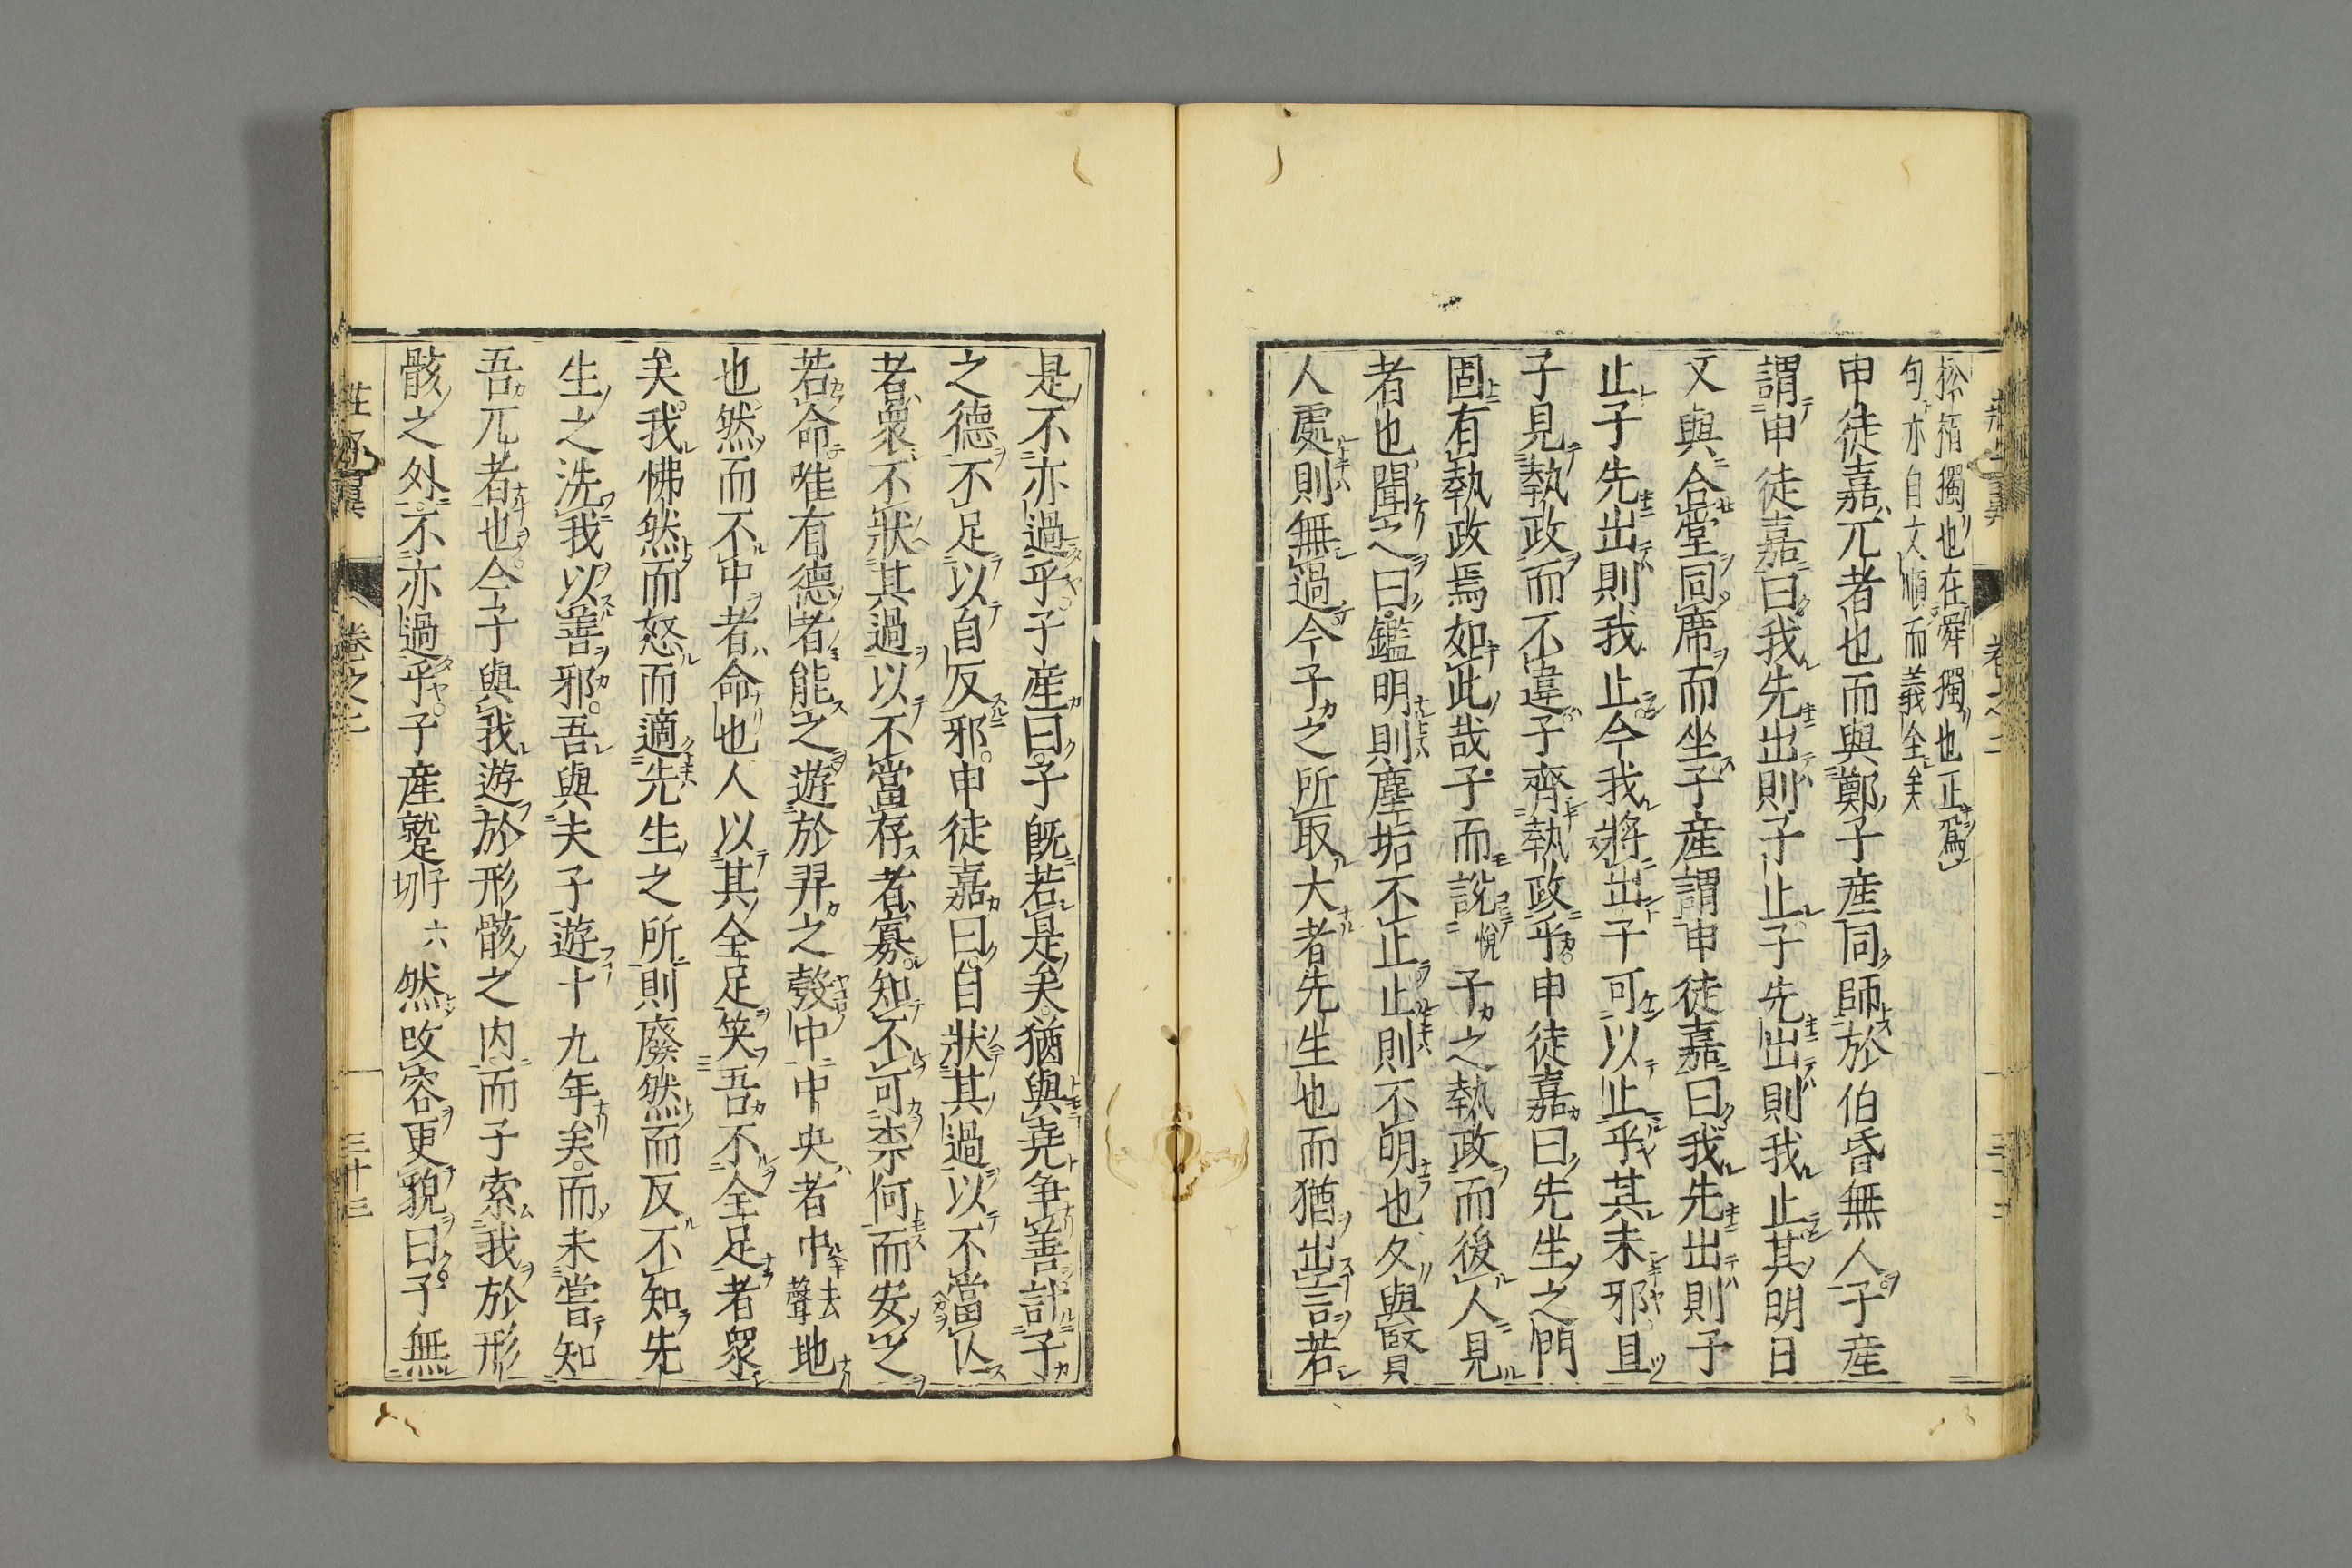 松栢獨也在舜獨也正爲
句亦自文順而義全矣
申徒嘉兀者也而與鄭子産同師於伯昏無人子産
謂申徒嘉曰我先出則子止子先出則我止其明日
又與合堂同席而坐子産謂申徒嘉曰我先出則子
止子先出則我止今我將出子可以止乎其未邪且
子見執政而不違子齊執政乎申徒嘉曰先生之門
固有執政焉如此哉子而說悅子之執政而後人見
者也聞之曰鑑明則塵垢不止止則不明也久與賢
人處則無過今子之所取大者先生也而猶出言若
是不亦過乎子産曰子既若是矣猶與堯争善計子
之德不足以自反邪申徒嘉曰自狀其過以不當亾
者衆不狀其過以不當存者寡知不可柰何而安之
若命唯有德者能之遊於羿之彀中中央者中去聲地
也然而不中者命也人以其全足笑吾不全足者衆
矣我怫然而怒而適先生之所則廢然而反不知先
生之洗我以善邪吾與夫子遊十九年矣而未嘗知
吾兀者也今子與我遊於形骸之内而子索我於形
骸之外不亦過乎子産蹵子六切然改容更貌曰子無
卷之二
三十三